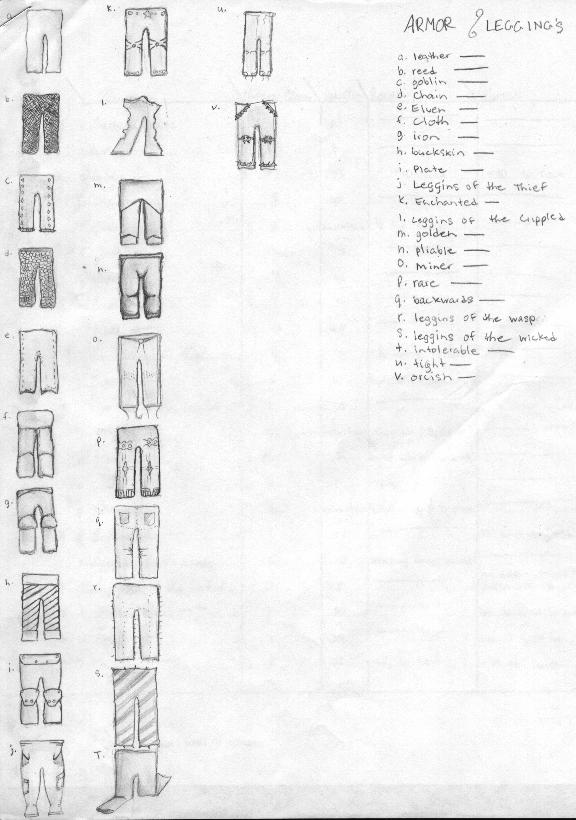 ARMOR & LEGGING'S
a. leather —
b. reed —
c. goblin —
d. Chain —
e. Elven —
f. Cloth —
g. iron —
h. buckskin —
i. Plate —
j. Leggins of the Thief
k. Enchanted —
l. Leggins of the Crippled
m. golden —
n. pliable —
o. miner —
p. rare —
q. backwards —
r. leggins of the wasp
s. leggins of the wicked
t. intolerable —
u. tight —
v. orcish —
a.
b.
c.
d.
e.
f.
g.
h.
i.
j.
k.
l.
m.
n.
o.
p.
q.
r.
s.
T.
u.
v.